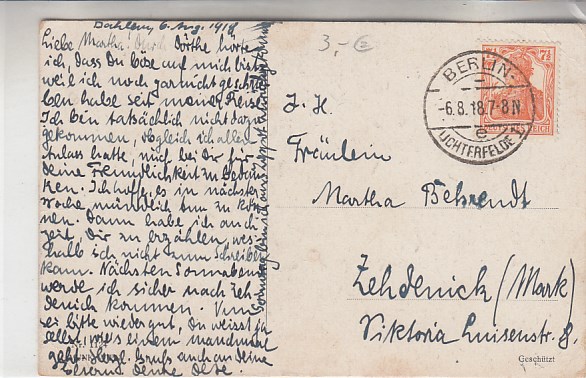 Dahlem, 6. Aug. 1918
Liebe Martha! Durch Dörthe hörte
ich, dass Du böse auf mich bist
weil ich noch gar nicht geschrie-
ben habe seit meiner Reise.
Ich bin tatsächlich nicht dazu
gekommen, obgleich ich allen
Anlass hatte, mich bei Dir für
Deine Freundlichkeit zu bedan-
ken. Ich hoffe, es in nächster
Woche mündlich tun zu kön-
nen. Dann habe ich auch
Zeit Dir zu erzählen, wes-
halb ich nicht zum Schreiben
kam. Nächsten Sonnabend
werde ich sicher nach Zeh-
denick kommen.
sei bitte wieder gut, Du weisst ja
alles, was einem manchmal
geht. Herzl. Gruss auch an Deine
Lieben Deine
Sonntag bin ich
3,- €
BERLIN-
-6.8.18.7-8N
e
LICHTERFELDE
7½
7½
REICH
Fräulein
Martha Behrendt
Zehdenick (Mark)
Viktoria Luisenstr. 8.
Geschützt